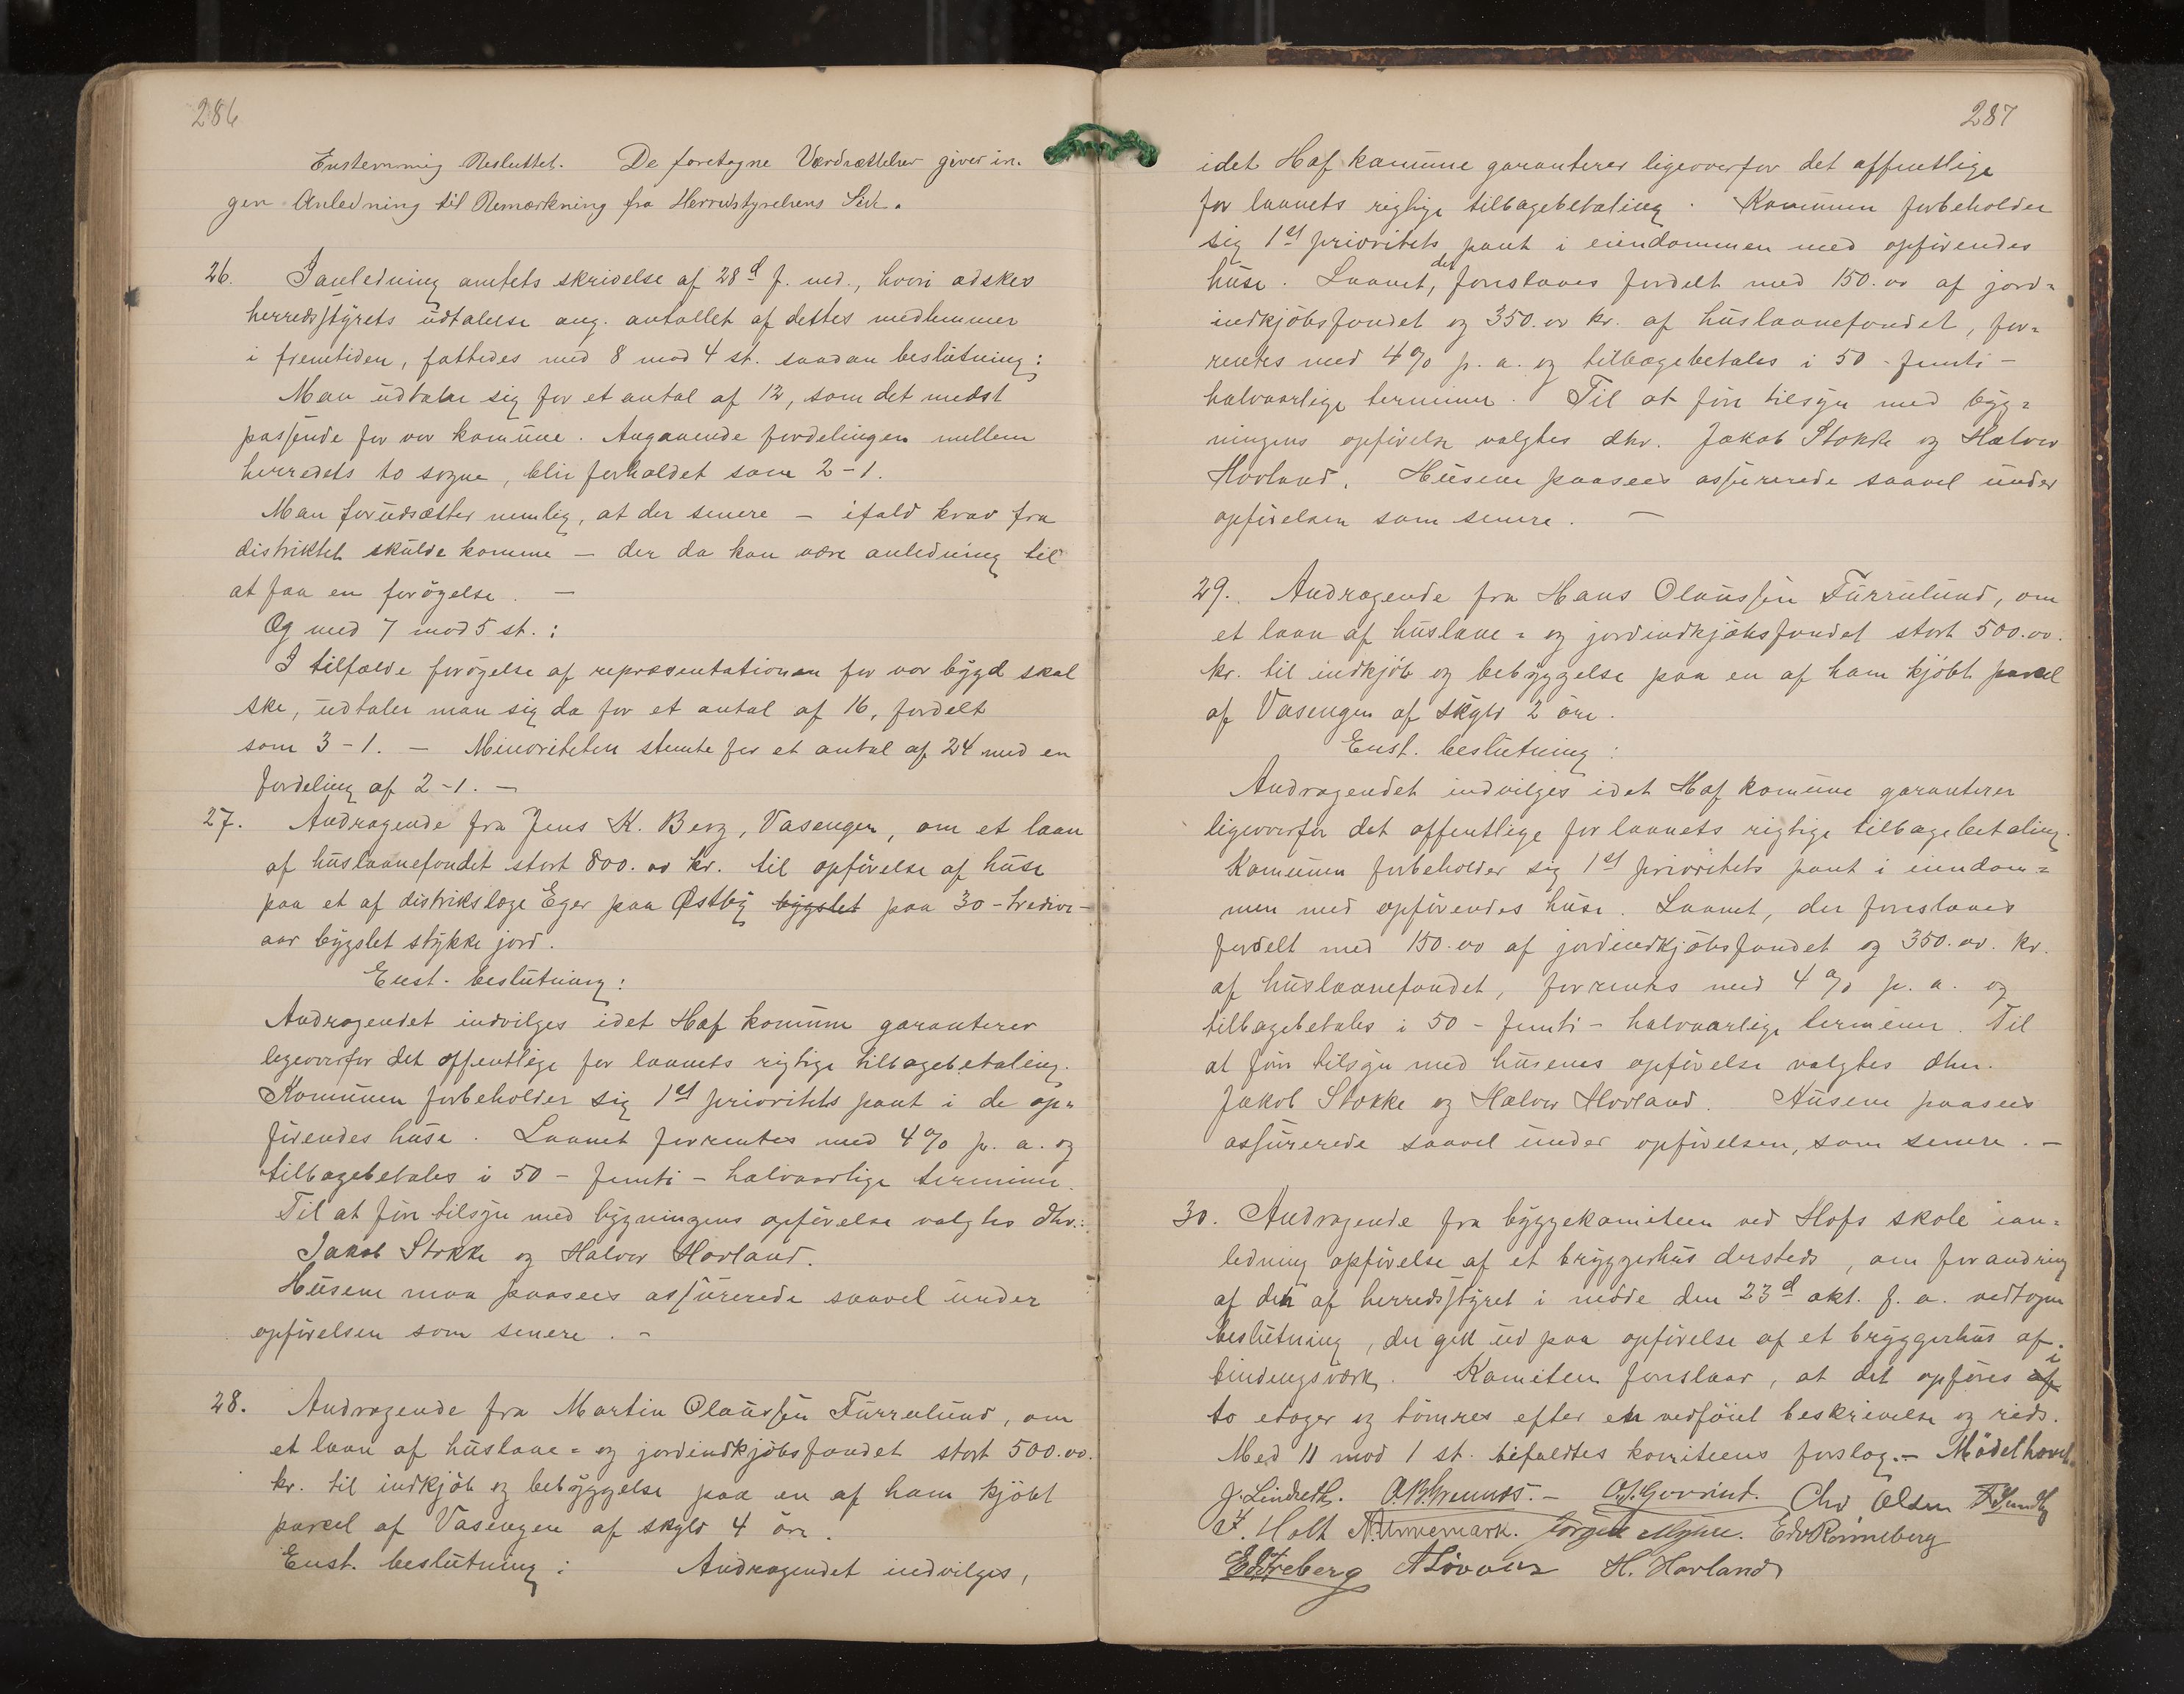 286
Enstemmig Besluttet. De foretagne Værdsættelser giver in-
gen Anledning til Bemærkning fra Herredstyrelsens Side.
26. I anledning amtets skrivelse af 28d f. md., hvori adskes
herredsstyrets udtalelse ang. antallet af dettes medlemmer
i fremtiden, fattedes med 8 mod 4 st. saadan beslutning:
Man udtaler sig for et antal af 12, som det mest
passende for vor komune. Angaaende fordelingen mellem
herredets to sogne, blir forholdet som 2-1.
Man forudsætter nemlig, at der senere – ifald krav fra
distriktet skulde komme – der da kan være anledning til
at faa en forøgelse. –
Og med 7 mod 5 st.:
I tilfælde forøgelse af repræsentationen for vor bygd skal
ske, udtaler man sig da for et antal af 16, fordelt
som 3-1. – Minoriteten stemte for et antal af 24 med en
fordeling af 2-1. –
27. Andragende fra Jens K. Berg, Vasengen, om et laan
af huslaanefondet stort 800.00 kr. til opførelse af huse
paa et af distrikslæge Eger paa Østby bygslet paa 30 - tredive -
aar bygslet stykke jord.
Enst. beslutning:
Andragendet indvilges idet Hof komune garanterer
ligeoverfor det offentlige for laanets rigtige tilbagebetaling.
Komunen forbeholder sig 1st prioritets pant i de op=
førendes huse. Laanet forrentes med 4% p. a. og
tilbagebetales i 50 – femti – halvaarlige terminer.
Til at føre tilsyn med bygningens opførelse valgtes dhr.:
Jakob Stokke og Halvor Hovland.
Husene maa paasees assurerede saavel under
opførelsen som senere. –
28. Andragende fra Martin Olaussen Furrulund, om
et laan af huslaane= og jordindkjøbsfondet stort 500.00.
kr. til indkjøb og bebyggelse paa en af ham kjøbt
parcel af Vasengen af skyld 4 øre.
Enst. beslutning: Andragendet indvilges,
287
idet Hof komune garanterer ligeoverfor det offentlige
for laanets rigtige tilbagebetaling. Komunen forbeholder
sig 1st prioritets pant i eiendommen med opførendes
huse. Laanet, der foreslaaes fordelt med 150.00 af jord=
indkjøbsfondet og 350.00 kr. af huslaanefondet, for=
rentes med 4% p. a. og tilbagebetales i 50 - femti -
halvaarlige terminer. Til at føre tilsyn med byg=
ningens opførelse valgtes dhr. Jakob Stokke og Halvor
Hovland. Husene paasees assurerede saavel under
opførelsen som senere. –
29. Andragende fra Hans Olaussen Furrulund, om
et laan af huslaane= og jordindkjøbsfondet stort 500.00.
kr. til indkjøb og bebyggelse paa en af ham kjøbt parcel
af Vasengen af skyld 2 øre.
Enst. beslutning:
Andragendet indvilges idet Hof komune garanterer
ligeoverfor det offentlige for laanets rigtige tilbagebetaling.
Komunen forbeholder sig 1st prioritets pant i eiendom=
men med opførendes huse. Laanet, der foreslaaes
fordelt med 150.00 af jordindkjøbsfondet og 350.00. kr.
af huslaanefondet, forrentes med 4% p. a. og
tilbagebetales i 50 - femti - halvaarlige terminer. Til
at føre tilsyn med husenes opførelse valgtes dhr.
Jakob Stokke og Halvor Hovland. Husene paasees
assurerede saavel under opførelsen, som senere. –
30. Andragende fra byggekomiteen ved Hofs skole ian=
ledning opførelse af et bryggerhus dersteds, om forandring
af den af herredsstyret i møde den 23d okt. f. a. vedtagne
beslutning, der gik ud paa opførelse af et bryggerhus af
bindingsværk. Komiteen foreslaar, at det opføres af i
to etager og tømres efter en vedføiet beskrivelse og rids.
Med 11 mod 1 st. bifaldtes komiteens forslag. – Mødet hævet.
J. Lindseth. Chr Olsen
Holt N. Unnemark. Jørgen Edv Rønneberg
H. Hovland